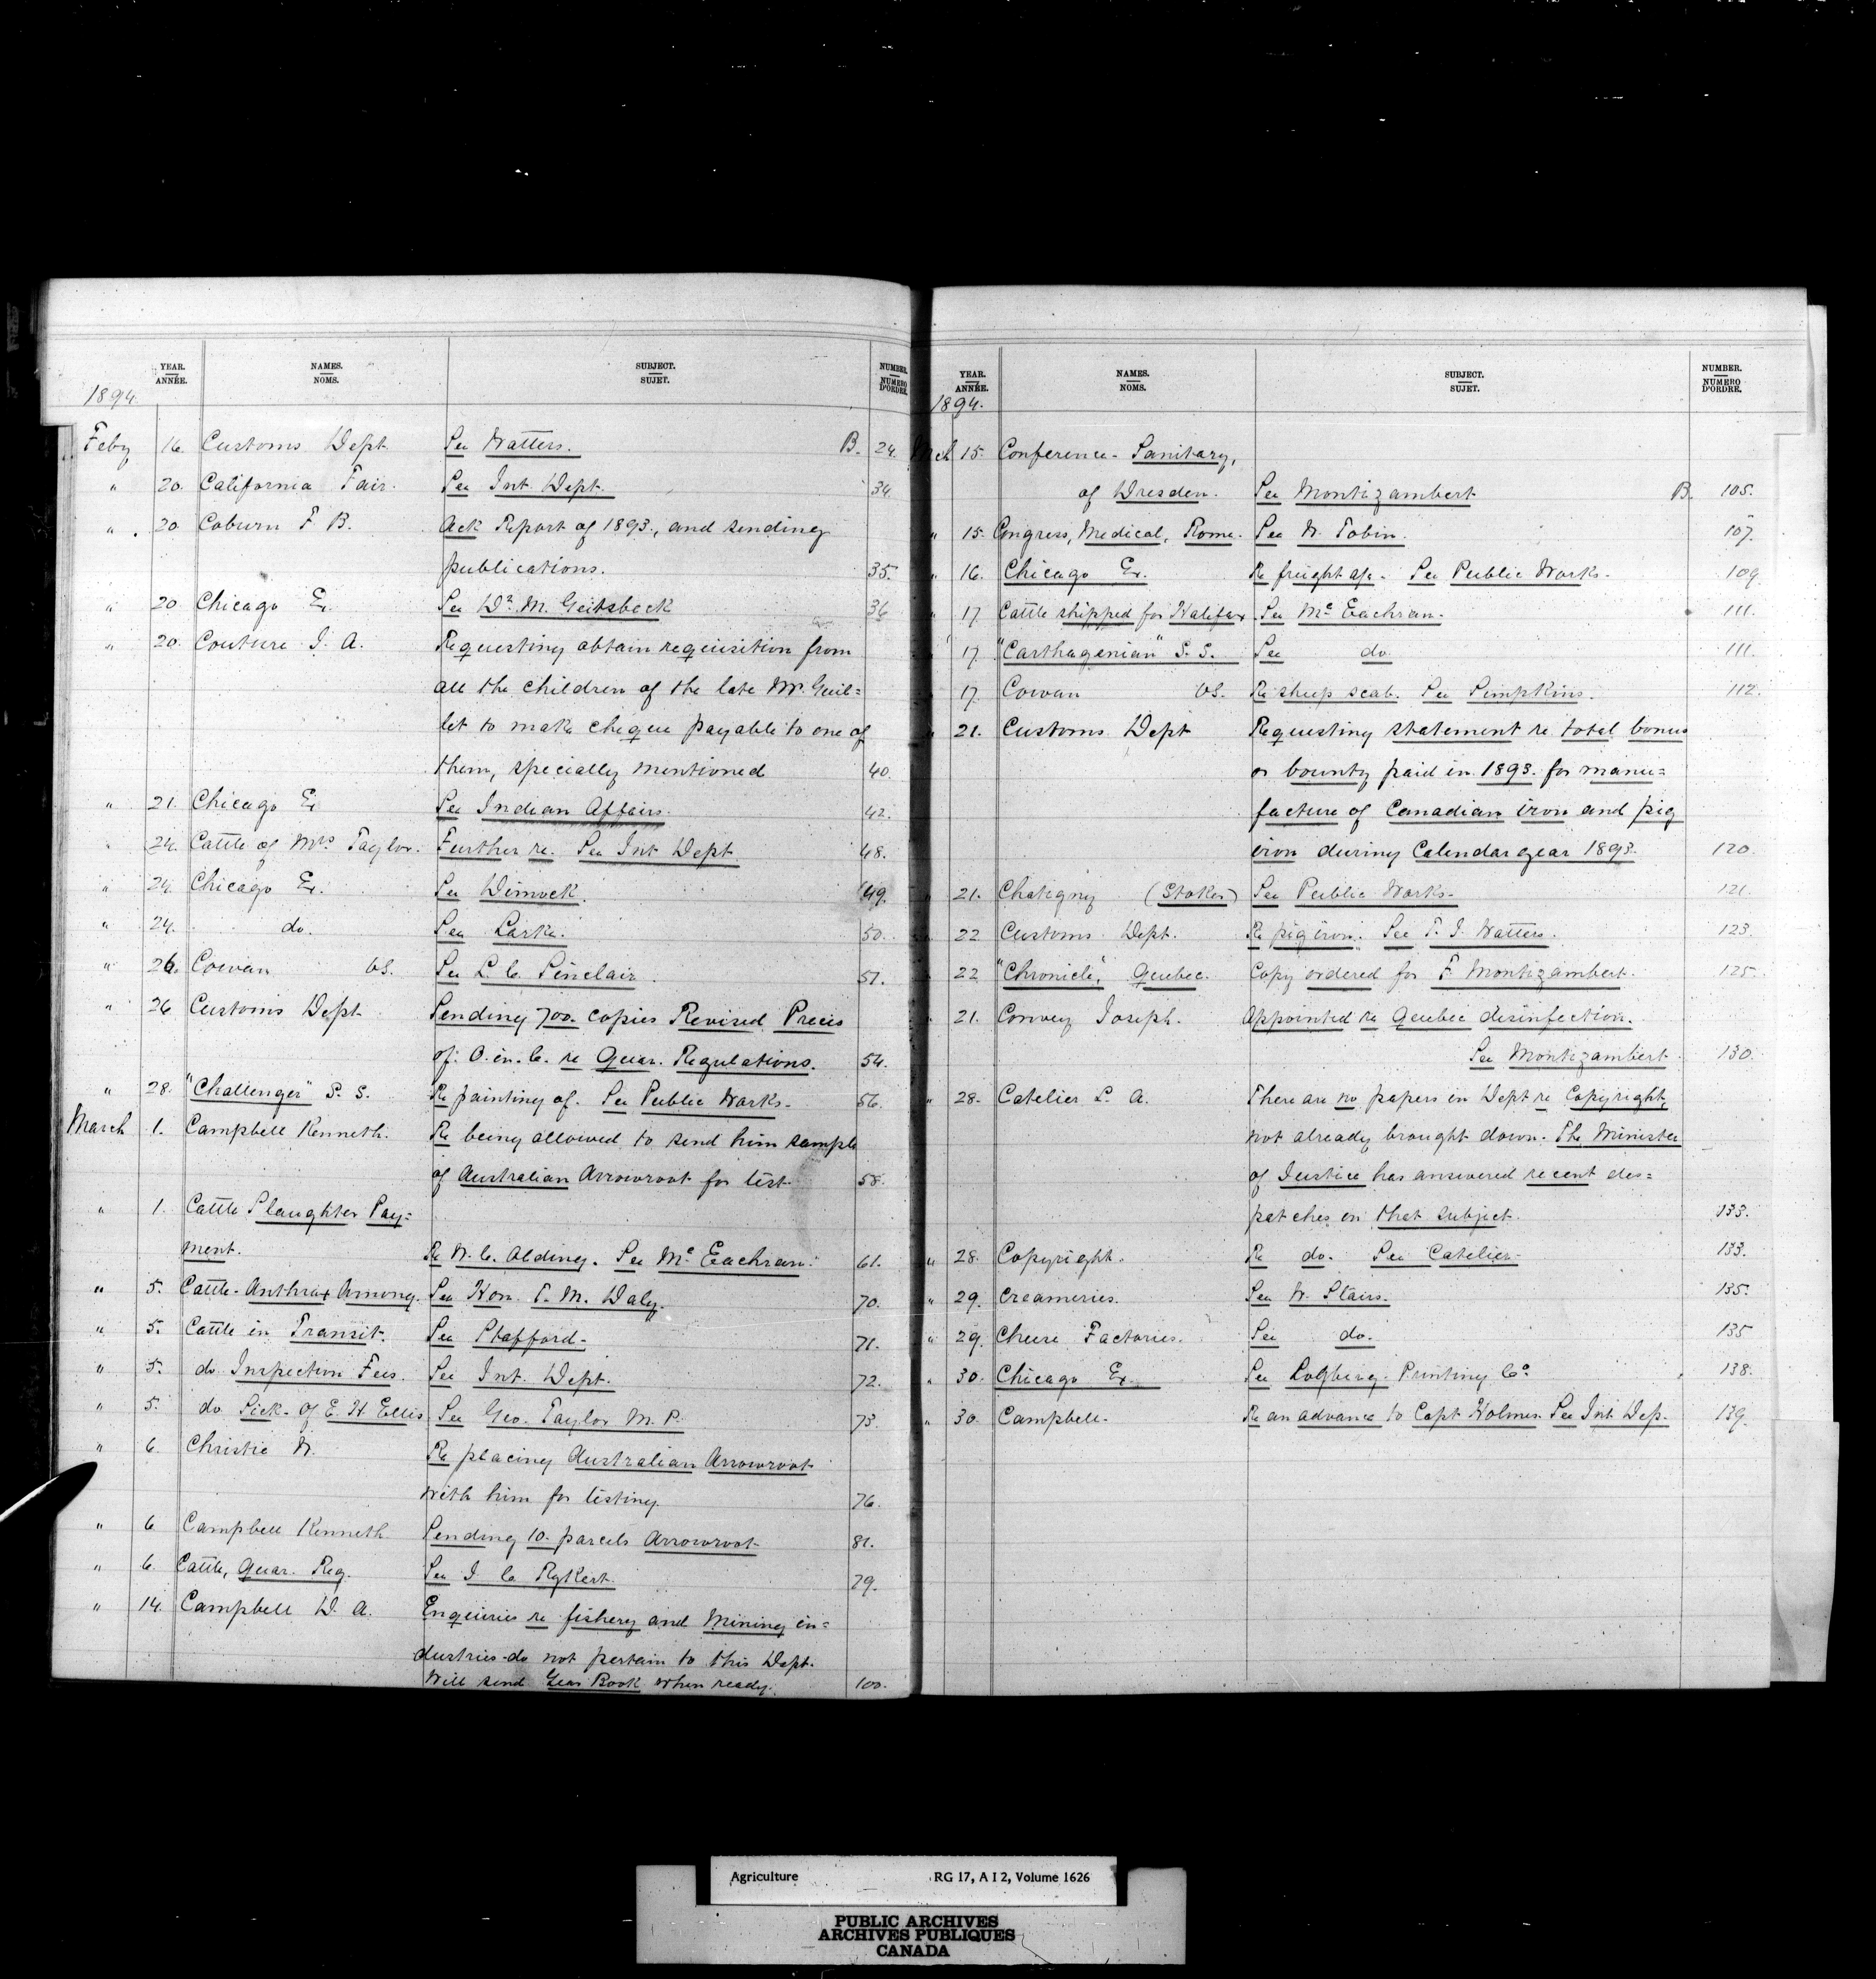 YEAR. ANNÉE. NAMES. NOMS. SUBJECT. SUJET. NUMBER. NUMERO D'ORDRE.
1894.
Feby 16. Customs Dept. See Watters. B. 24.
" 20. California Fair. See Int Dept. 34
" 20 Coburn F. B. Ack Report of 1893, and sending
publications. 35.
" 20 Chicago Ex. See Dr. M. Geitsbeck 36
" 20. Couture J. A. Requesting obtain requisition from
all the children of the late Mr. Guil=
let to make cheque payable to one of
them, specially mentioned 40.
" 21. Chicago Ex See Indian Affairs. 42.
" 24. Cattle of Mrs Taylor. Further re. See Int Dept 48.
" 24. Chicago Ex. See Dimock. 49.
" 24. do. See Larke. 50.
" 26. Cowan vs. See L. C. Sinclair. 51.
" 26 Customs Dept. Sending 700 copies Revised Precis
of O. in. C. re Quar. Regulations. 54.
" 28. "Challenger" S. S. Re painting of. See Public Works. 56.
March 1. Campbell Kenneth. Re being allowed to send him sample
of Australian Arrowroot for test 58.
" 1. Cattle Slaughter Pay=
ment. Re W. C. Alding. See Mc Eachran. 61.
" 5. Cattle-Anthrax Among. See Hon. T. M. Daly. 70.
" 5. Cattle in Transit. See Stafford. 71.
" 5. do Inspection Fees. See Int. Dept. 72.
" 5. do Sick. of E. H Ellis See Geo. Taylor M. P. 73.
" 6. Christie W. Re placing Australian Arrowroot
with him for testing. 76.
" 6 Campbell Kenneth Sending 10. parcels Arrowroot 81.
" 6. Cattle, Quar. Reg. See J. C. Rykert. 79.
" 14. Campbell D. A. Enquiries re fishery and mining in=
dustries-do not pertain to this Dept.
Will send Year Book when ready. 100.
YEAR. ANNÉE. NAMES. NOMS. SUBJECT. SUJET. NUMBER. NUMERO D'ORDRE.
1894.
Mch 15. Conference- Sanitary,
of Dresden. See Montizambert B. 105.
" 15. Congress, Medical, Rome. See W. Tobin. 107.
" 16. Chicago Ex. Re freight a/c. See Public Works. 109
" 17 Cattle shipped for Halifax. See Mc Eachran. 111.
" 17. "Carthagenian" S. S. See do. 111.
" 17. Cowan vs. Re sheep scab. See Simpkins. 112.
" 21. Customs Dept Requesting statement re total bonus
or bounty paid in 1893. for manu=
facture of Canadian iron and pig
iron during Calendar year 1893. 120
" 21. Chatigny (Stokes) See Public Works. 121.
" 22 Customs Dept. Re pig iron. See T. J. Watters. 123.
" 22 "Chronicle", Quebec. Copy ordered for F. Montizambert. 125.
" 21. Convey Joseph. Appointed re Quebec disinfection.
See Montizambert. 130.
" 28. Catelier L. A. There are no papers in Dept re Copyright,
not already brought down. The Minister
of Justice has answered recent des=
patches on that subject. 133.
" 28. Copyright. Re do. See Catelier. 133.
" 29. Creameries. See W. Stairs. 135.
" 29. Cheese Factories. See do. 135
" 30. Chicago Ex. See Printing Co. 138.
" 30. Campbell. Re an advance to Capt Holmes. See Int Dep. 139.
Agriculture RG 17, A I 2, Volume 1626
PUBLIC ARCHIVES
ARCHIVES PUBLIQUES
CANADA